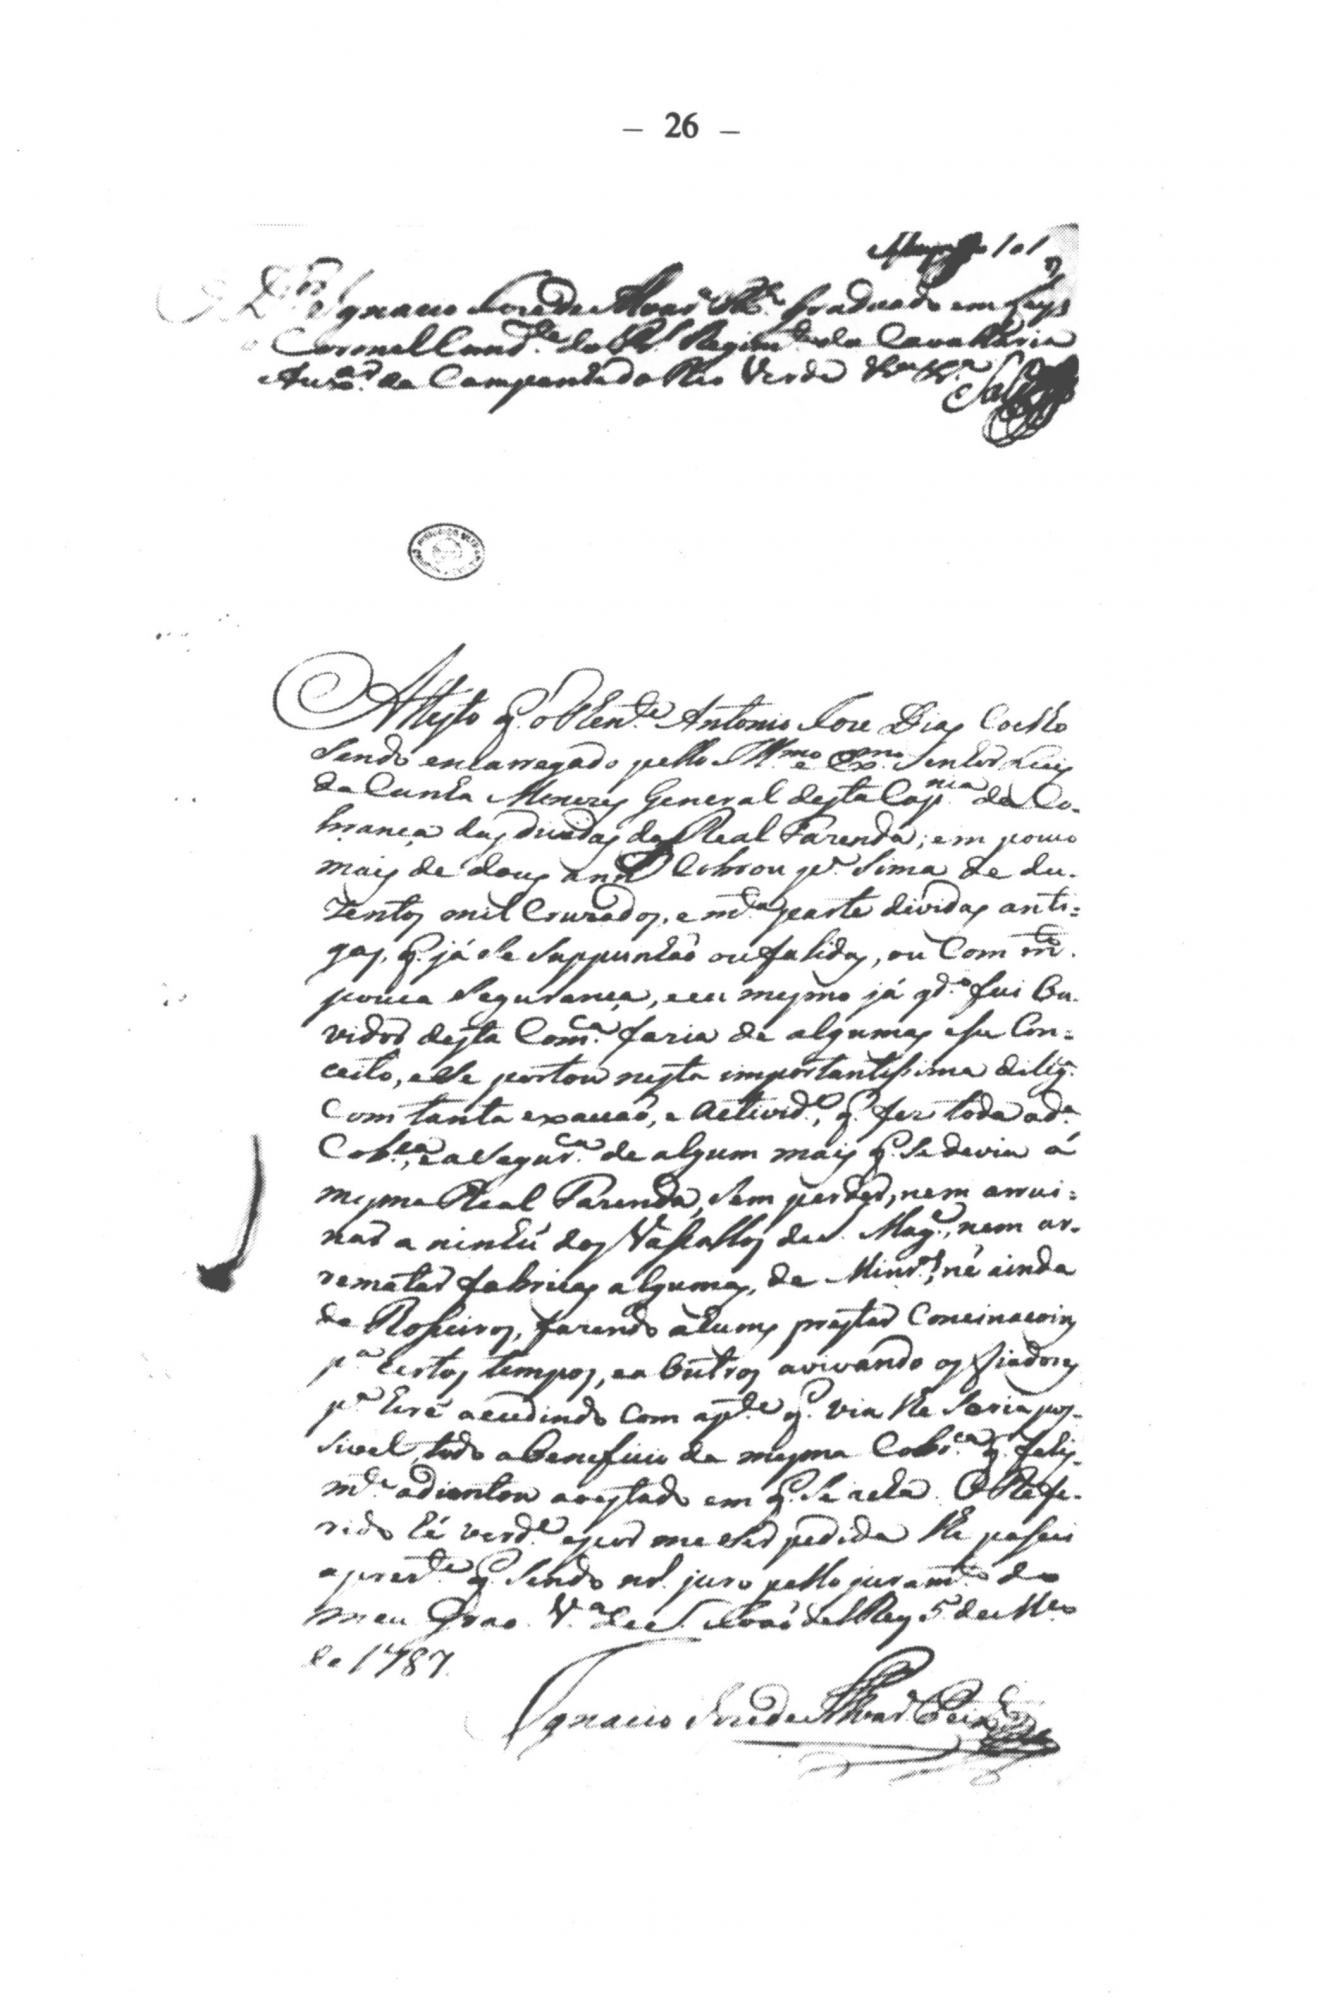 – 26 –
D.or Ignacio Joze de Alvar.a P.to Graduado em Leys
Coronel Com.de do Regim.to da Cavallaria
Aux.ar da Campanha do Rio Verde
Attesto q. o Then.te Antonio Joze Dias Coelho
Sendo encarregado pello Ill.mo e Ex.mo Senhor Luis
da Cunha Menezes General desta Cap.nia da Co-
brança das dividas da Real Fazenda; em pouco
mais de dous annos Cobrou p.r sima de du-
zentos mil Cruzados, e m.ta parte dividas anti-
gas, q. já se suppunhaõ ou falidas, ou Com m.ta
pouca Segurança, e eu mesmo já q.do fui Ou-
vidor desta Com.ca fazia de algumas esse Con-
ceito, e Se portou nesta importantissima dilig.
Com tanta exacçaõ, e activid.e, q. fez toda a d.a
Cob.ca, e a Segur.ca de algum mais q. Se devia á
mesma Real Fazenda, Sem perder, nem arrui-
nar a ninhú dos Vassallos de S. Mag.e, nem ar-
rematar fabricas algumas, de Miner.s, nê ainda
de Rosseiros, fazendo a huns prestar Concinacoins
p.a Certos tempos, e a Outros avivando os fiadores
p.a hire acudindo Com a p.te q. via lhe Seria pos-
sivel, tudo a beneficio da mesma Cobr.ca q. felis-
m.te adiantou ao estado em q. Se acha. O Refe-
rido hé verd.e e por me Ser pedida lhe passei
a prez.te q. Sendo n.o juro pello juram.to do
meu Grao. V.a de S. Joaõ del Rey 5 de M.co
de 1787.
Ignacio Joze de Alvar.a Peix.to